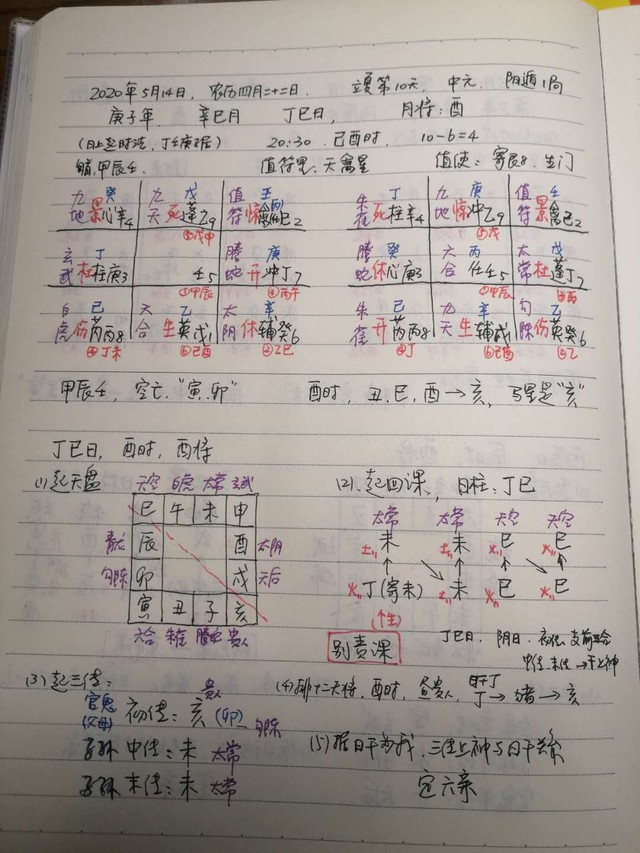 2020年5月14日，农历四月二十二日，立夏第10天，中元，阴遁1局
庚子年，辛巳月 丁巳日， 月将：酉
20:30，己酉时， 10-6=4
旬首，甲辰壬， 值符星：天禽星 值使：寄辰8，生门
九地 癸 景心辛4 九天 戊 死蓬乙9 值符 壬 惊禽己2
⑤戊申
玄武 丁 杜柱庚3 壬5 腾蛇 庚 开冲丁7
①甲辰 ③丙午
白虎 己 伤芮丙8 六合 乙 生英戊1 太阴 辛 休辅癸6
④丁未 ⑥己酉 ②乙巳
朱雀 丁 死柱辛4 九地 庚 惊冲乙9 值符 壬 景禽己2
⑤戊
腾蛇 癸 休心庚3 六合 丙 任壬5 太常 戊 杜蓬丁7
①甲辰 ③丙
朱雀 己 开芮丙8 九天 辛 生辅戊1 勾陈 乙 伤英癸6
④丁 ⑥己酉 ②乙
甲辰壬，空亡，“寅、卯” 酉时，丑、巳、酉→亥，马星是“亥”
丁巳日，酉时，酉将
(1)起天盘 (2)、起四课，日柱：丁巳
天空 白虎 太常 玄武
太常 太常 天空 天空
巳 午 未 申
土 未 土 未 火 巳 火 巳
青龙 辰 酉 太阴
勾陈 卯 戌 天后
火 丁(寄未) 土 未 火 巳 火 巳
寅 丑 子 亥
六合 朱雀 腾蛇 贵人
别责课
丁巳日，阴日，初传，支前三合
中传、末传→干上神
(3)起三传： 贵人
(4)排十二天将，酉时，昼贵人，日干丁
丁→猪→亥
官鬼 (父母) 初传：亥 (卯) 勾陈
子孙 中传：未 太常
(5)据日干为我，三传上神与日干关系
子孙 末传：未 太常
定六亲